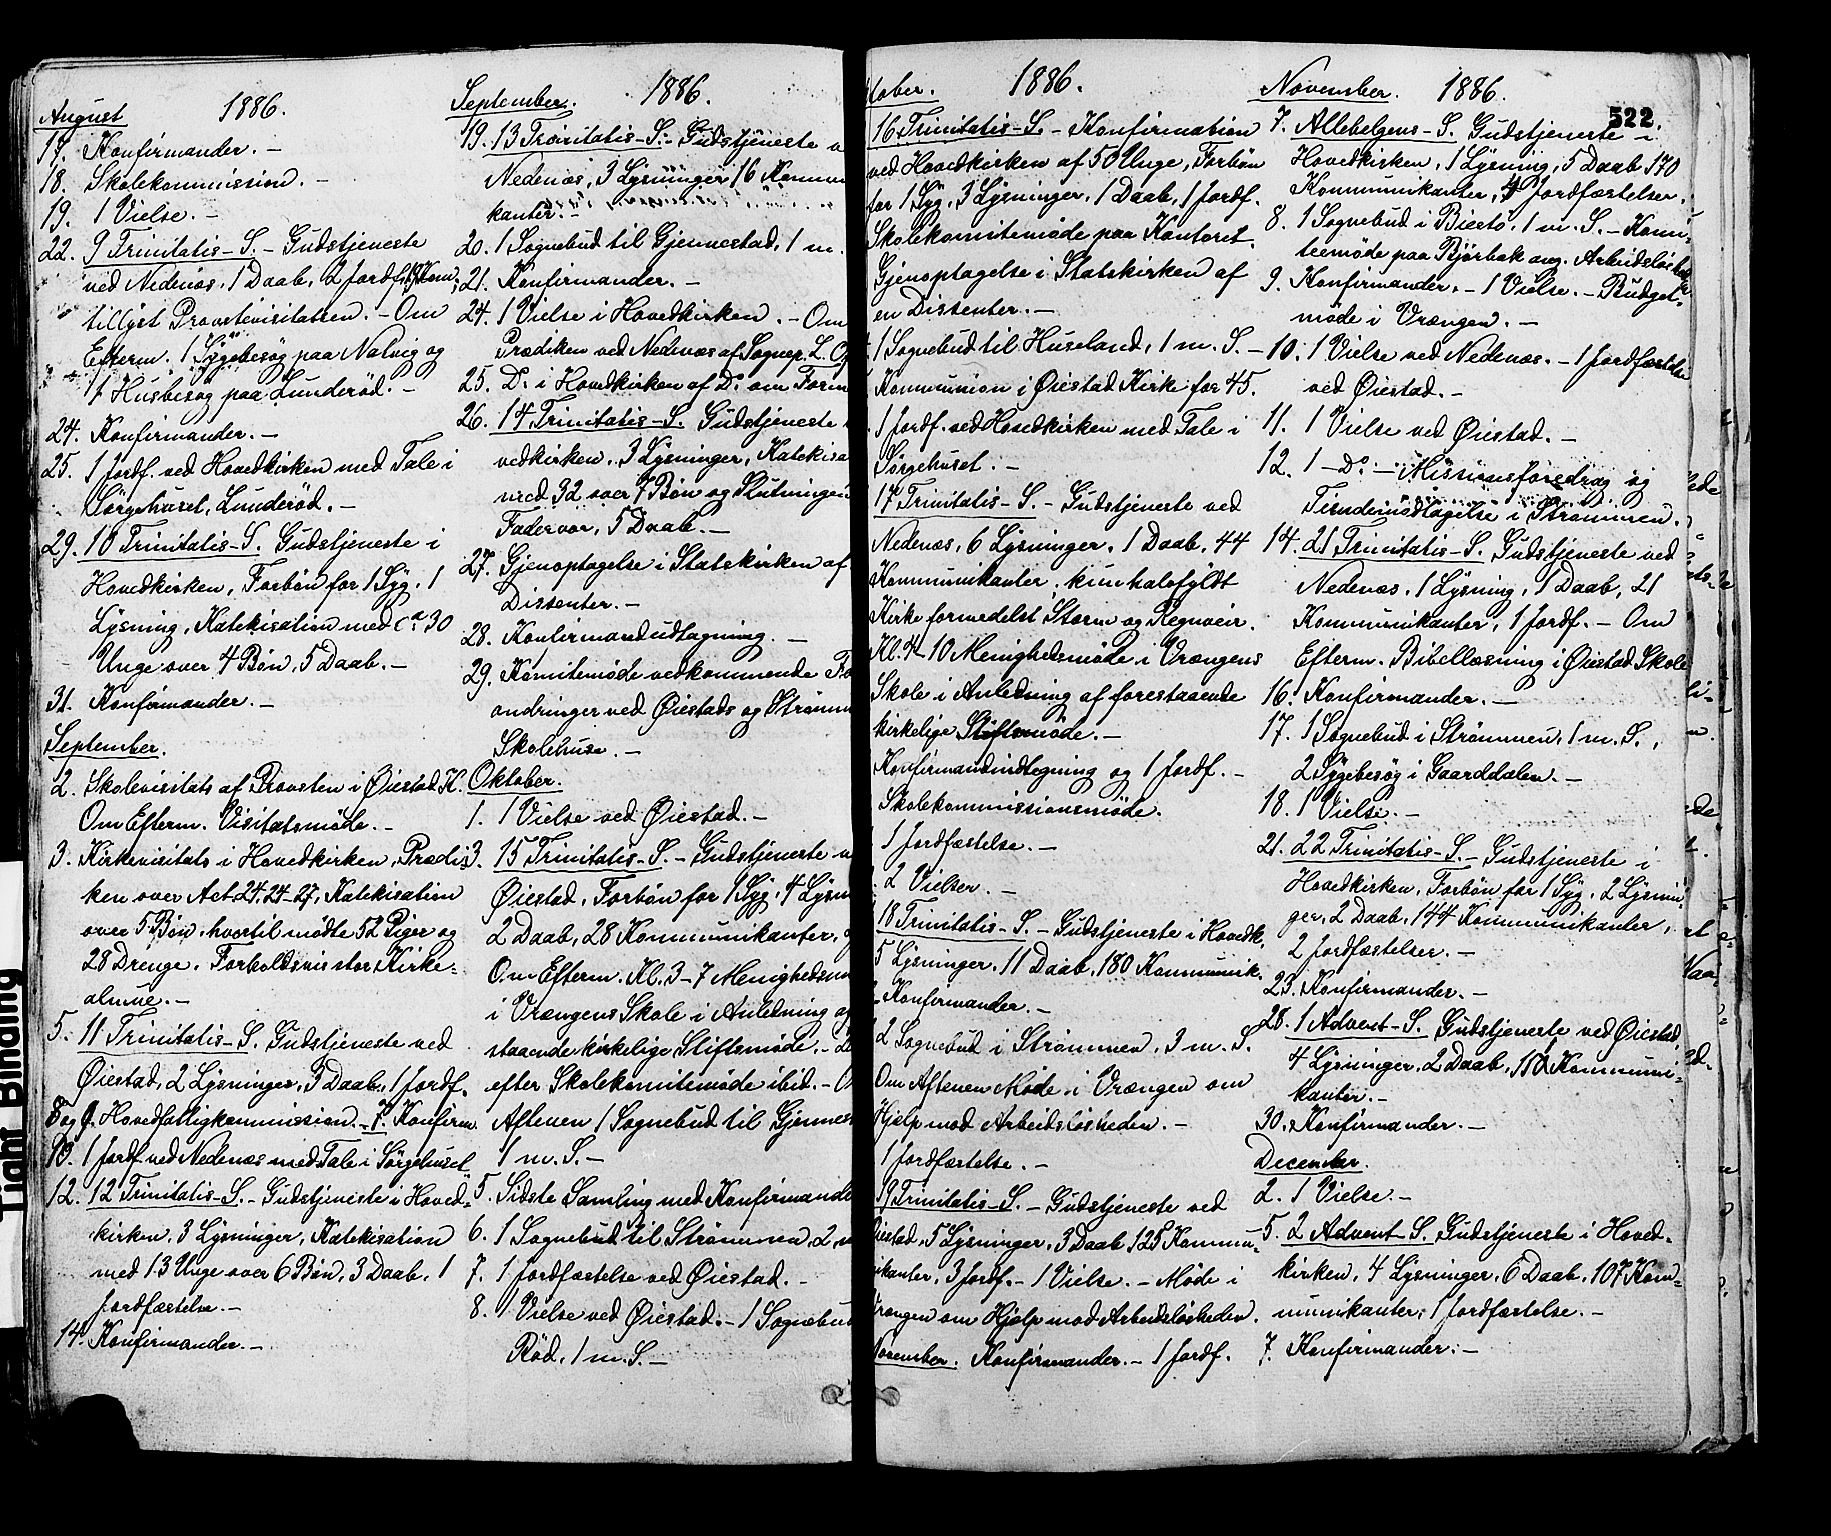 August 1886.
17. Konfirmander. –
18. Skolekommission. –
19. 1 Vielse. –
22. 9 Trinitatis-S. – Gudstjeneste
ved Nedenæs, 1 Daab, 2 Jordf.
tillyst Provstevisitatsen. – Om
Efterm. 1 Sygebesøg paa Natvig og
1 Husbesøg paa Lunderød. –
24. Konfirmander. –
25. 1 Jordf. ved Hovedkirken med Tale i
Sørgehuset, Lunderød. –
29. 10 Trinitatis-S. Gudstjeneste i
Hovedkirken, Forbøn for 1 Syg, 1
Lysning, Katekisation med Ca 30
Unge over 4 Bøn, 5 Daab. –
31. Konfirmander. –
September.
2. Skolevisitats af Provsten i Øiestad K.
Om Efterm. Visitatsmøde. –
3. Kirkevisitats i Hovedkirken, Prædi-
ken over Act. 24. 24–27, Katekisation
over 5 Bøn, hvortil mødte 52 Piger og
28 Drenge. Forholdsvis stor Kirke-
almue. –
5. 11 Trinitatis-S. Gudstjeneste ved
Øiestad, 2 Lysninger, 3 Daab, 1 Jordf.
8 og 9. Hovedfattigkommission. – 7. Konfirm.
10. 1 Jordf. ved Nedenæs med Tale i Sørgehuset
12. 12 Trinitatis-S. – Gudstjeneste i Hoved-
kirken, 3 Lysninger, Katekisation
med 13 Unge over 6 Bøn, 3 Daab, 1
Jordfæstelse. –
14. Konfirmander. –
September. 1886.
19. 13 Trinitatis-S. – Gudstjeneste v
Nedenæs, 3 Lysninger, 16 Kommu
kanter. –
20. 1 Sognebud til Gjennestad, 1 m.
21. Konfirmander. –
24. 1 Vielse i Hovedkirken. – Om
Prædiken ved Nedenæs af Sognep. L. O
25. Do. i Hovedkirken af Do. om Form
26. 14 Trinitatis-S. Gudstjeneste
vedkirken. 3 Lysninger, Katekisa
med 32 over 7 Bøn og Slutningen
Fadervor, 5 Daab. –
27. Gjenoptagelse i Statskirken af
Dissenter. –
28. Konfirmandudtagning. –
29. Komitemøde vedkommende Fo
andringer ved Øiestads og Strømm
Skolehuse. –
Oktober.
1. 1 Vielse ved Øiestad. –
3. 15 Trinitatis-S. – Gudstjeneste v
Øiestad, Forbøn for 1 Syg, 4 Lysn
2 Daab, 28 Kommunikanter,
Om Efterm. Kl. 3–7 Menighedsm
i Vrængens Skole i Anledning af
staaende kirkelige Stiftsmøde. –
efter Skolekomitemøde ibid. –
Aftenen 1 Sognebud til Gjennes
1 m. S. –
5. Sidste Samling med Konfirmande
6. 1 Sognebud til Strømmen, 2
7. 1 Jordfæstelse ved Øiestad. –
8. 1 Vielse ved Øiestad. – 1 Sognebud
Rød, 1 m. S. –
tober. 1886.
16 Trinitatis-S. – Konfirmation
ved Hovedkirken af 50 Unge, Forbøn
for 1 Syg, 3 Lysninger, 1 Daab, 1 Jordf.
Skolekomitemøde paa Kontoret.
Gjenoptagelse i Statskirken af
en Dissenter. –
1 Sognebud til Huseland, 1 m. S. –
Kommunion i Øiestad Kirke for 45.
1 Jordf. ved Hovedkirken med Tale i
Sørgehuset. –
17 Trinitatis-S. – Gudstjeneste ved
Nedenæs, 6 Lysninger, 1 Daab, 44
Kommunikanter, kun halvfyldt
Kirke formedelst Storm og Regnveir.
Kl. 4–10 Menighedsmøde i Vrængens
Skole i Anledning af forestaaende
kirkelige Stiftsmøde. –
Konfirmandindtegning og 1 Jordf. –
Skolekommissionsmøde.
1 Jordfæstelse. –
2 Vielser. –
18 Trinitatis-S. – Gudstjeneste i Hovedk.
5 Lysninger, 11 Daab, 180 Kommunik.
Konfirmander. –
2 Sognebud i Strømmen, 3 m. S.
Om Aftenen Møde i Vrængen om
Hjælp mod Arbeidsløsheden. –
1 Jordfæstelse. –
19 Trinitatis-S. – Gudstjeneste ved
Øiestad, 5 Lysninger, 3 Daab, 125 Kommu-
nikanter, 3 Jordf. – 1 Vielse. – Møde i
Vrængen om Hjælp mod Arbeidsløsheden.
November. Konfirmander. – 1 Jordf.
November. 1886.
522.
7. Allehelgens-S. Gudstjeneste i
Hovedkirken, 1 Lysning, 5 Daab, 170
Kommunikanter, 4 Jordfæstelser.
8. 1 Sognebud i Biestø, 1 m. S. – Komi-
teemøde paa Bjørbæk ang. Arbeidsløshed
9. Konfirmander. – 1 Vielse. – Budget-
møde i Vrængen. –
10. 1 Vielse ved Nedenæs. – 1 Jordfæstelse
ved Øiestad. –
11. 1 Vielse ved Øiestad. –
12. 1 – Do. – Missionsforedrag og
Tiendemodtagelse i Strømmen.
14. 21 Trinitatis-S. Gudstjeneste ved
Nedenæs, 1 Lysning, 1 Daab, 21
Kommunikanter, 1 Jordf. – Om
Efterm. Bibellæsning i Øiestad Skole
16. Konfirmander. –
17. 1 Sognebud i Strømmen, 1 m. S.,
2 Sygebesøg i Gaarddalen. –
18. 1 Vielse. –
21. 22 Trinitatis-S. – Gudstjeneste i
Hovedkirken, Forbøn for 1 Syg, 2 Lysnin-
ger, 2 Daab, 144 Kommunikanter,
2 Jordfæstelser. –
23. Konfirmander. –
28. 1 Advent-S. Gudstjeneste ved Øiestad,
4 Lysninger, 2 Daab, 110 Kommuni-
kanter. –
30. Konfirmander. –
December.
2. 1 Vielse. –
5. 2 Advent-S. Gudstjeneste i Hoved-
kirken, 4 Lysninger, 6 Daab, 107 Kom-
munikanter, 1 Jordfæstelse. –
7. Konfirmander. –
Tight Binding